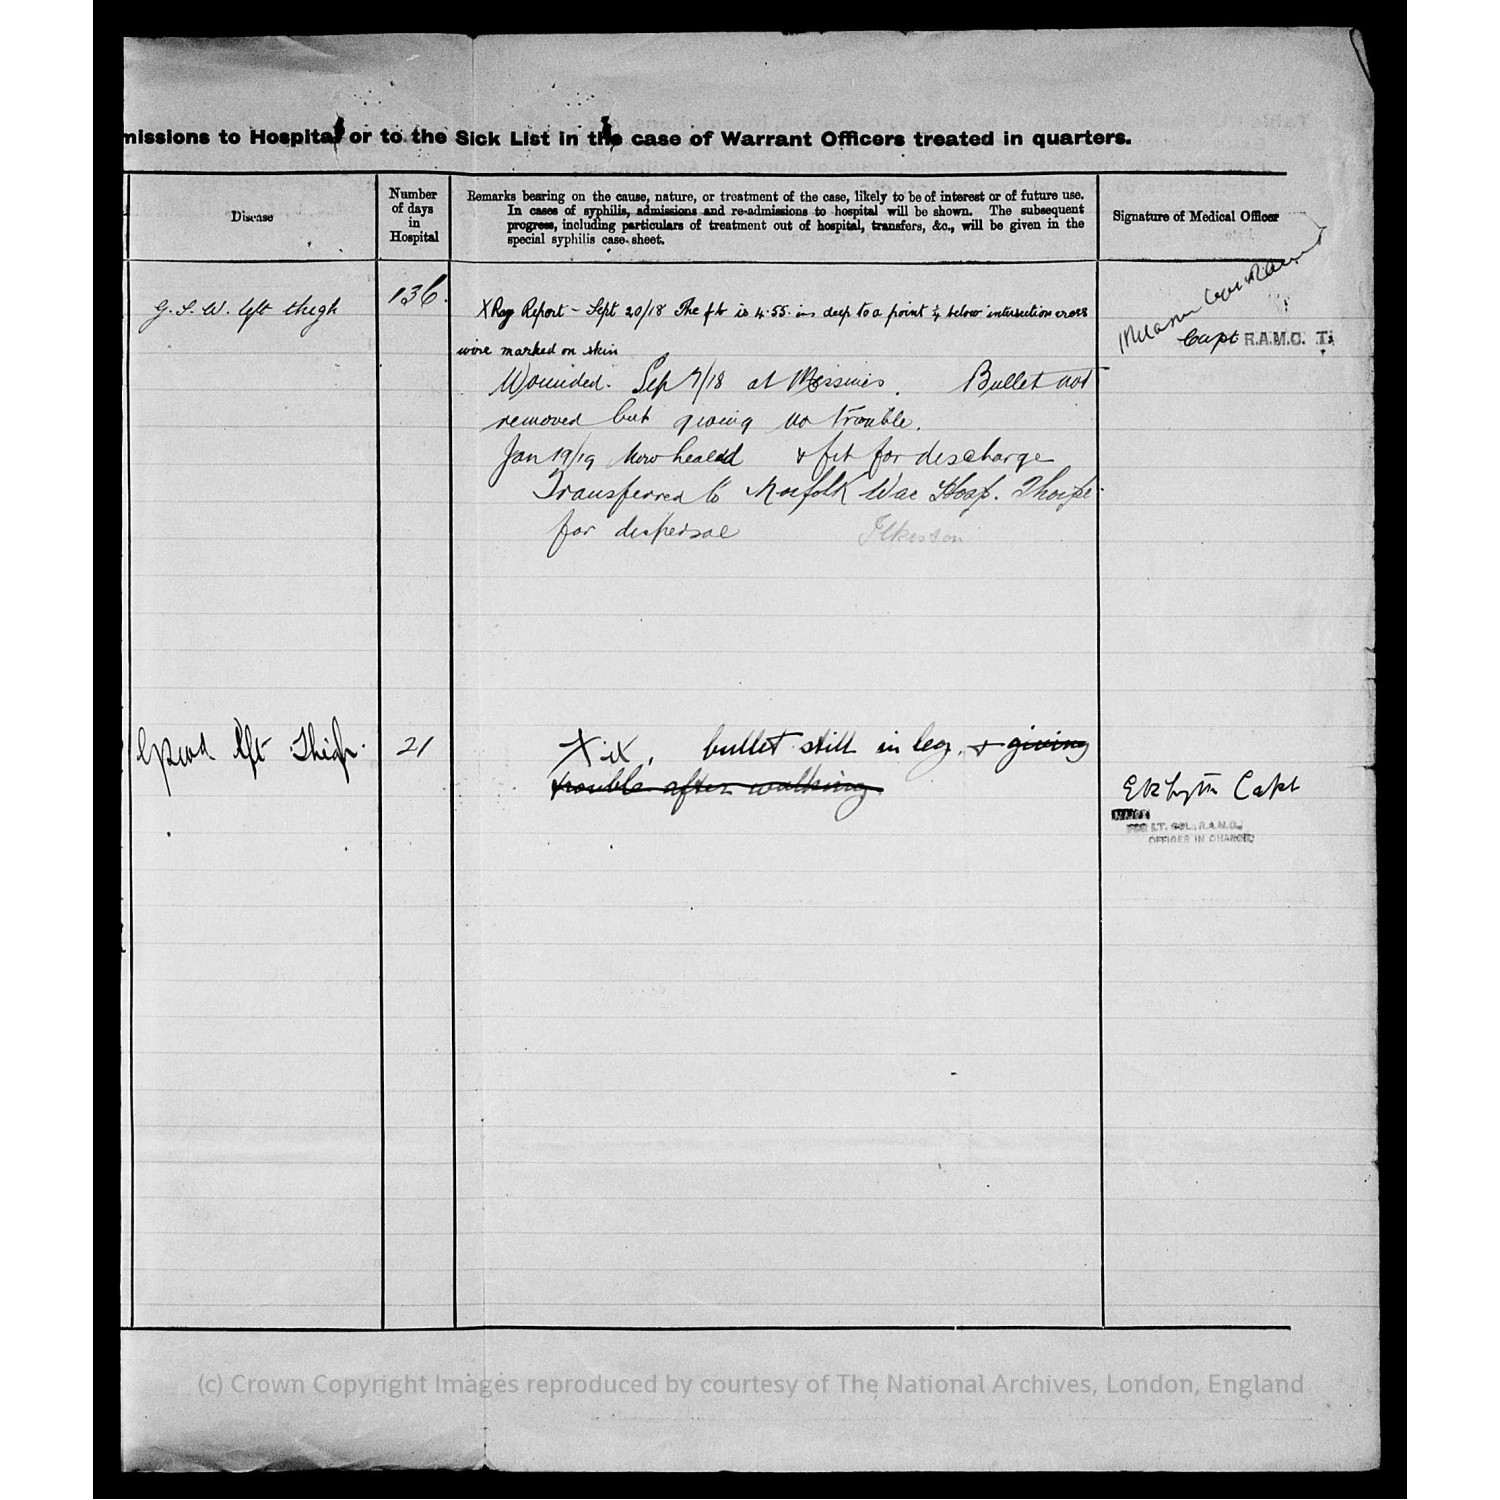 missions to Hospital or to the Sick List in the case of Warrant Officers treated in quarters.
Disease
Number
of days
in
Hospital
Remarks bearing on the cause, nature, or treatment of the case, likely to be of interest or of future use.
In cases of syphilis, admissions and re-admissions to hospital will be shown. The subsequent
progress, including particulars of treatment out of hospital, transfers, &c., will be given in the
special syphilis case-sheet.
Signature of Medical Officer
G. S. W. left thigh
136.
X Ray Report - Sept 20/18 The fb is 4.55 ins deep to a point ¼ below intersection cross
wire marked on skin
Capt R.A.M.C. T.
Wounded. Sep 7/18 at Messines. Bullet not
removed but giving no trouble.
Jan 19/19 Now healed & fit for discharge
Transferred to Norfolk War Hosp. Thorpe
for dispersal Ilkeston
left Thigh.
21
bullet still in leg, & giving
trouble after walking.
Capt
MAJOR
FOR LT. COL., R.A.M.C.,
OFFICER IN CHARGE,
(c) Crown Copyright Images reproduced by courtesy of The National Archives, London, England